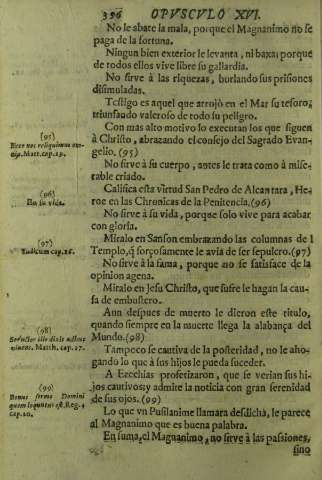 396 OPVSCVLO XVI.
No le abate la mala, porque el Magnanimo no se
paga de la fortuna.
Ningun bien exterior le levanta, ni baxa: porque
de todos ellos vive libre su gallardia.
No sirve à las riquezas, burlando sus prisiones
disimuladas.
Testigo es aquel que arrojò en el Mar su tesoro,
triunfando valeroso de todo su peligro.
Con mas alto motivo lo executan los que siguen
à Christo, abrazando el consejo del Sagrado Evan-
gelio. (95)
No sirve à su cuerpo, antes le trata como à mise-
rable criado.
Califica esta virtud San Pedro de Alcantara, He-
roe en las Chronicas de la Penitencia. (96)
No sirve à su vida, porque solo vive para acabar
con gloria.
Miralo en Sanson embrazando las columnas de l
Templo, q̃ forçosamente le avia de ser sepulcro. (97)
No sirve à la fama, porque no se satisface de la
opinion agena.
Miralo en Jesu Christo, que sufre le hagan la cau-
sa de embustero.
Aun despues de muerto le dieron este titulo,
quando siempre en la muerte llega la alabança del
Mundo. (98)
Tampoco se cautiva de la posteridad, no le aho-
gando lo que à sus hijos le pueda suceder.
A Ezechias profetizaron, que se verian sus hi-
jos cautivos; y admite la noticia con gran serenidad
de sus ojos. (99)
Lo que vn Pusilanime llamàra desdicha, le parece
al Magnanimo que es buena palabra.
En suma, el Magnanimo, no sirve à las passiones,
sino
(95)
Ecce nos reliquimus om-
nia. Matt. cap. 19.
(96)
En su vida.
(97)
Iudicum cap. 16.
(98)
Seductor ille dixit adhuc
vivens. Matth. cap. 27.
(99)
Bonus sermo Domini
quem loquutus est. Reg. 4
cap. 20.